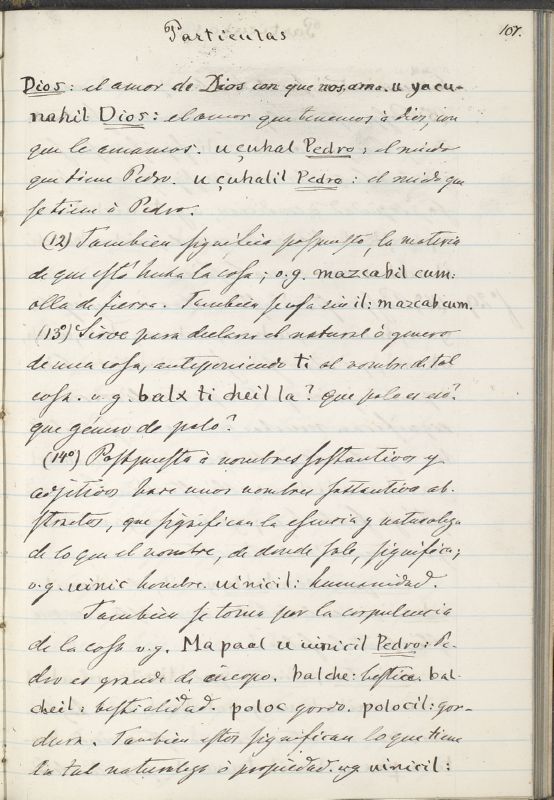 Particulas
107.
Dios: el amor de Dios con que nos ama. u yacu-
nahil Dios: el amor que tenemos à dios, con
que le amamos. u çuhal Pedro: el miedo
que tiene Pedro. u çuhalil Pedro: el miedo que
se tiene à Pedro.
(12) Tambien significa pospuesto, la materia
de que està hecha la cosa; v.g. mazcabil cum:
olla de fierra. Tambien se usa sin il: mazcab cum.
(13º) Sirve para declarar el natural ò genero
de una cosa, anteponiendo ti al nombre de tal
cosa. v.g. balx ti cheil la? que palo es esto?
que género de palo?
(14º) Pospuesta à nombres sostantivos y
adjetivos hace unos nombres sostantivos ab-
stractos, que significan la esencia y naturaleza
de lo que el nombre, de donde sale, significa;
v.g. uinic hombre. uinicil: humanidad.
Tambien se toma por la corpulencia
de la cosa v.g. Ma paal u uinicil Pedro: Pe-
dro es grande de cuerpo. balche: bestia. bal-
cheil: bestialidad. poloc gordo. polocil: gor-
dura. Tambien estos significan lo que tiene
la tal naturaleza ò propiedad. v.g. uinicil: